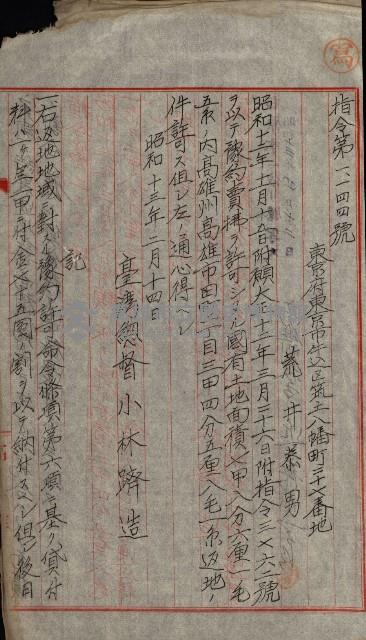 寫
指令第一一四四號
東京府東京市牛込區筑土八幡町三十七番地
荒井恭男
昭和十二年十一月十五日附願大正十二年三月二十六日附指令三〇六二號
ヲ以テ豫約賣拂ヲ許可シタル國有土地面積八甲八分六厘一毛
五糸ノ內高雄州高雄市田町二丁目三甲四分五厘八毛一糸返地ノ
件許可ス但シ左ノ通心得ヘシ
昭和十三年二月十四日
臺灣總督小林躋造
記
一右返地地域ニ對スル豫約許可命令條項第六項ニ基ク貸付
料ハ一ケ年一甲ニ付金七十五圓ノ割ヲ以テ納付スヘシ但シ後日